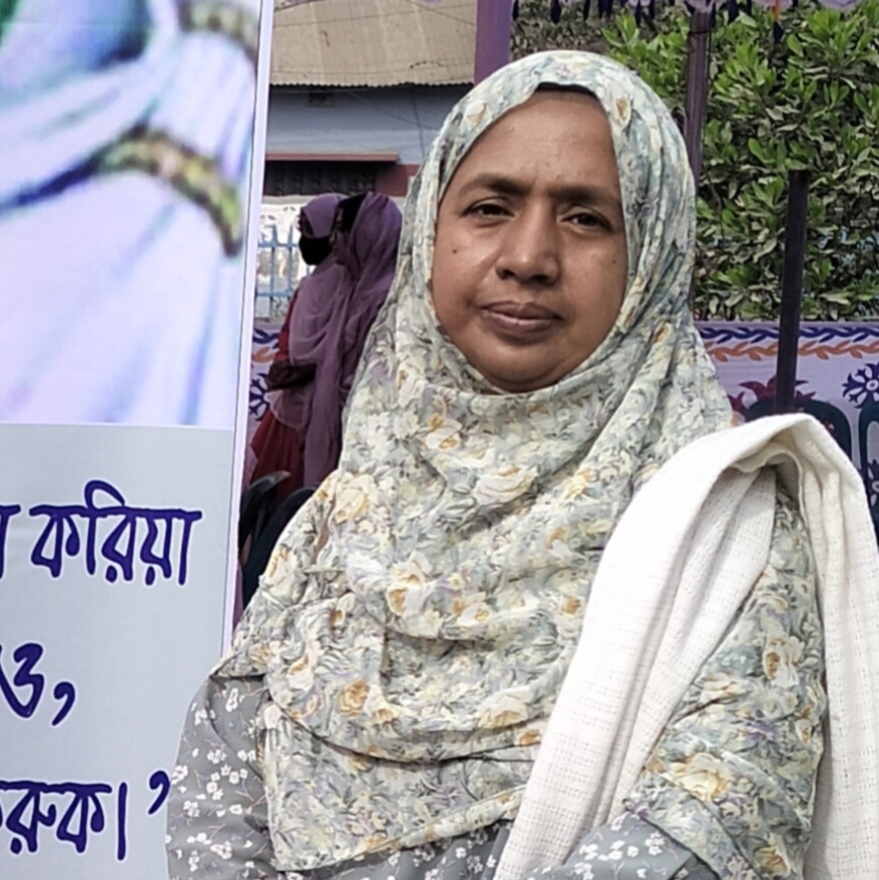 করিয়া
ও,
করুক।’